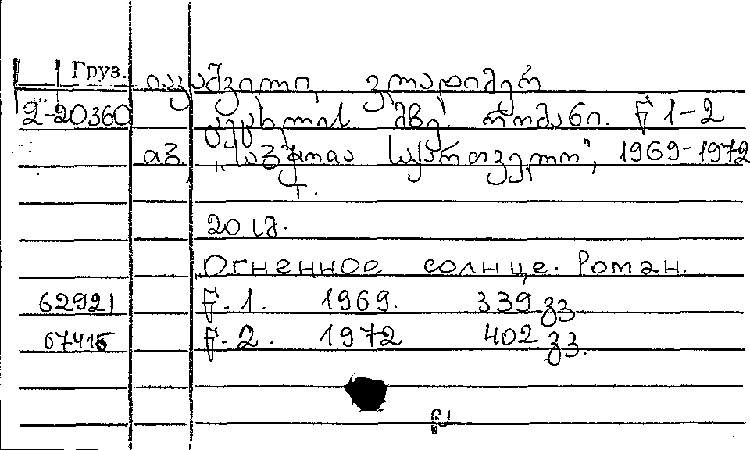 Груз. იაკაშვილი ვლადიმერ
2-20360 ცეცხლის მზე რომანი. წ 1-2
თბ. „საბჭოთა საქართველო", 1969-1972
ტ.
20 სმ.
Огненное солнце. Роман.
62921 წ. 1. 1969. 339 გვ.
67415 წ. 2. 1972 402 გვ.